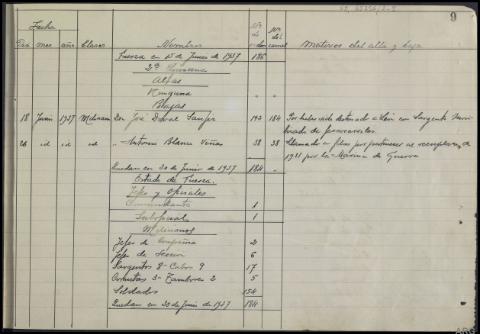 9
Fecha
Dia mes año Clases Nombres Nº de orden Nº del carnet Motivos del alta y baja
Fuerza en 15 de Junio de 1937 186
2ª Quincena
Altas
Ninguna " "
Bajas
18 Junio 1937 Miliciano Don José 193 184 Por haber sido destinado a
26 id id " Antonio Blanco 38 38 Llamado a filas por pertenecer al reemplazo de
1931 por la Marina de Guerra
Quedan en 30 de Junio de 1937 184 "
Estado de Fuerza.
Jefes y Oficiales
Comandante 1
Suboficial 1
Milicianos
Jefes de 2
Jefes de Sección 6
Sargentos 8 - Cabos 9 17
Cornetas 3 - Tambores 2 5
Soldados 154
Quedan en 30 de Junio de 1937 184